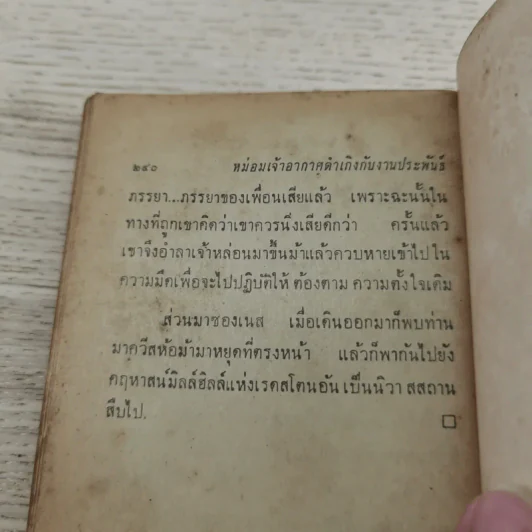 ๒๔๐ หม่อมเจ้าอากาศดำเกิงกับงานประพันธ์
ภรรยา...ภรรยาของเพื่อนเสียแล้ว เพราะฉะนั้นใน
ทางที่ถูกเขาคิดว่าเขาควรนิ่งเสียดีกว่า ครั้นแล้ว
เขาจึงอำลาเจ้าหล่อนมาขึ้นม้าแล้วควบหายเข้าไปใน
ความมืดเพื่อจะไปปฏิบัติให้ ต้องตาม ความตั้งใจเดิม
ส่วนมาซองเนส เมื่อเดินออกมาก็พบท่าน
มาควีสห้อม้ามาหยุดที่ตรงหน้า แล้วก็พากันไปยัง
คฤหาสน์มิลล์ฮิลล์แห่งเรดสโตนอัน เป็นนิวา สสถาน
สืบไป.